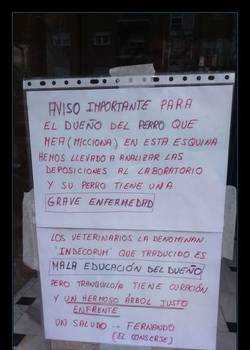 AVISO IMPORTANTE PARA
EL DUEÑO DEL PERRO QUE
MEA (MICCIONA) EN ESTA ESQUINA
HEMOS LLEVADO A ANALIZAR LAS
DEPOSICIONES AL LABORATORIO
Y SU PERRO TIENE UNA
GRAVE ENFERMEDAD
LOS VETERINARIOS LA DENOMINAN
"INDECORUM" QUE TRADUCIDO ES
MALA EDUCACIÓN DEL DUEÑO,
PERO TRANQUILO/A TIENE CURACIÓN
Y UN HERMOSO ÁRBOL JUSTO
ENFRENTE
UN SALUDO - FERNANDO
(EL CONSERJE)